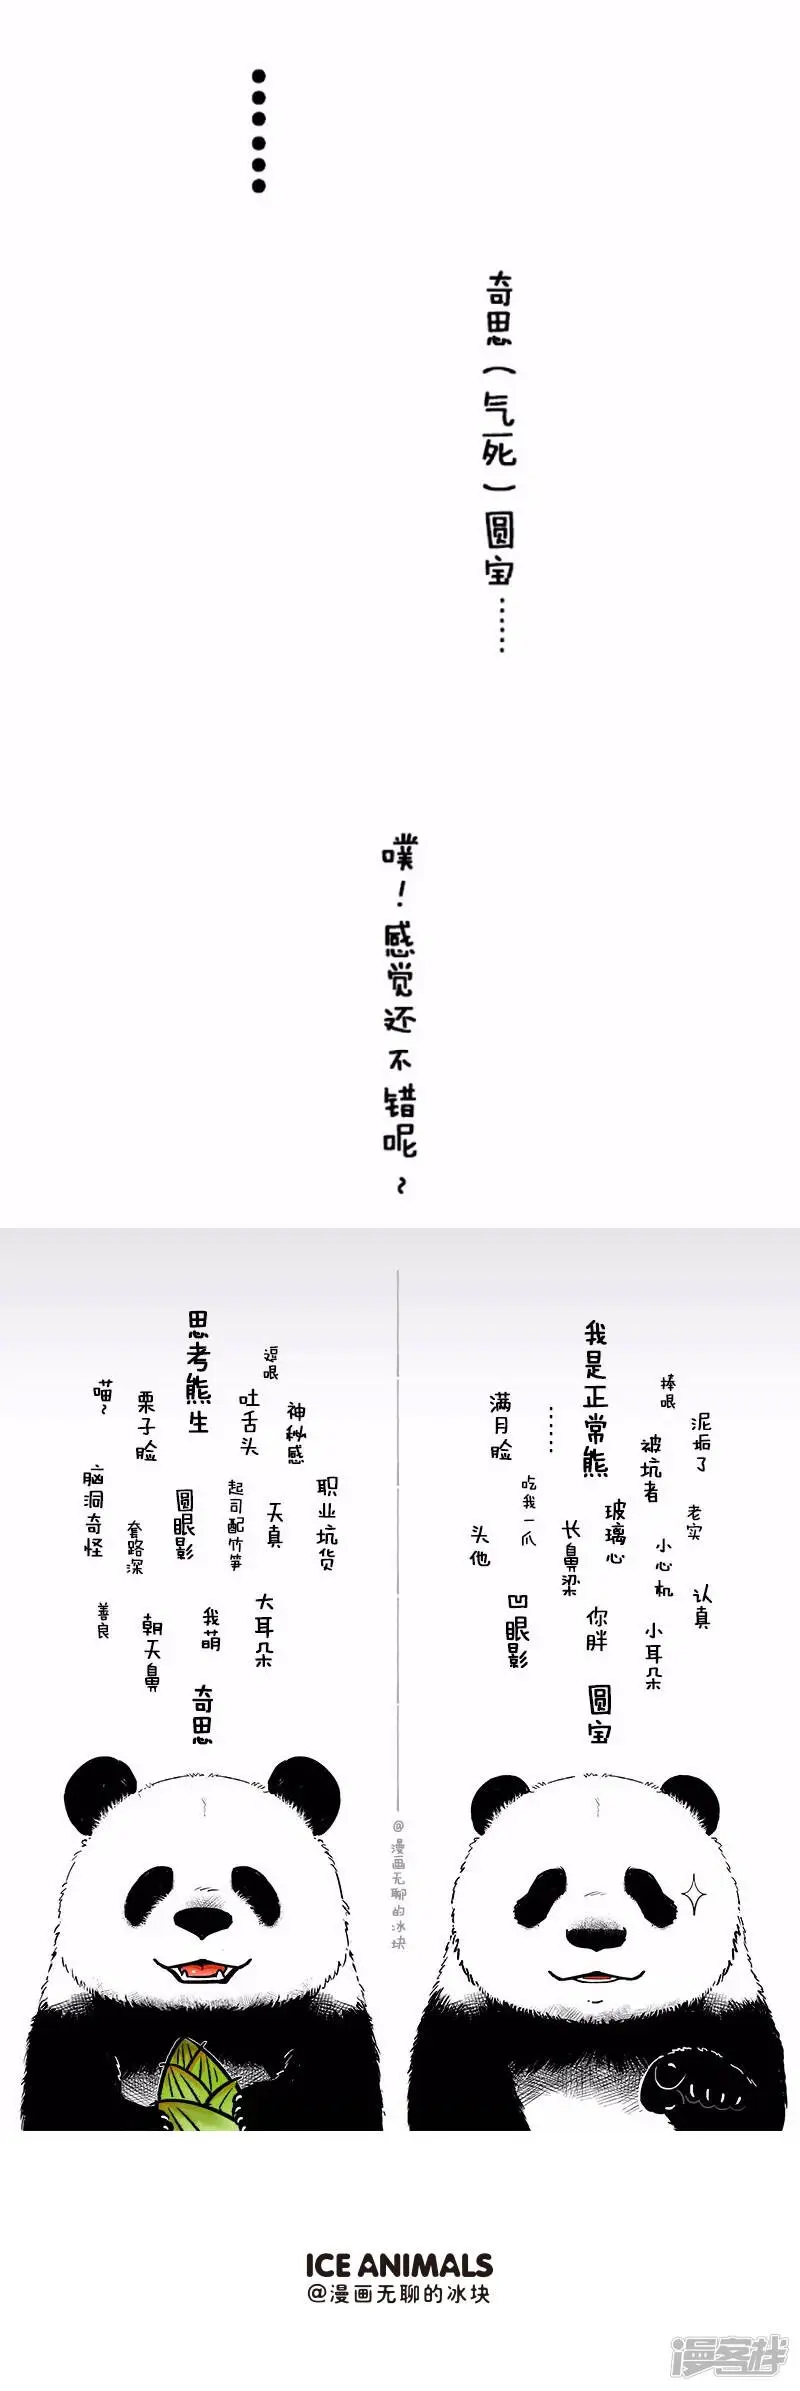 ……
奇思(气死)圆宝……
噗!感觉还不错呢~
思考熊生
逗哏
喵~
栗子脸
吐舌头
神秘感
脑洞奇怪
套路深
圆眼影
起司配竹笋
天真
职业坑货
善良
朝天鼻
我萌
大耳朵
奇思
我是正常熊
捧哏
满月脸
……
被坑者
泥垢了
头他
吃我一爪
长鼻梁
玻璃心
小心机
老实
认真
凹眼影
你胖
小耳朵
圆宝
@漫画无聊的冰块
ICE ANIMALS
@漫画无聊的冰块
漫客栈